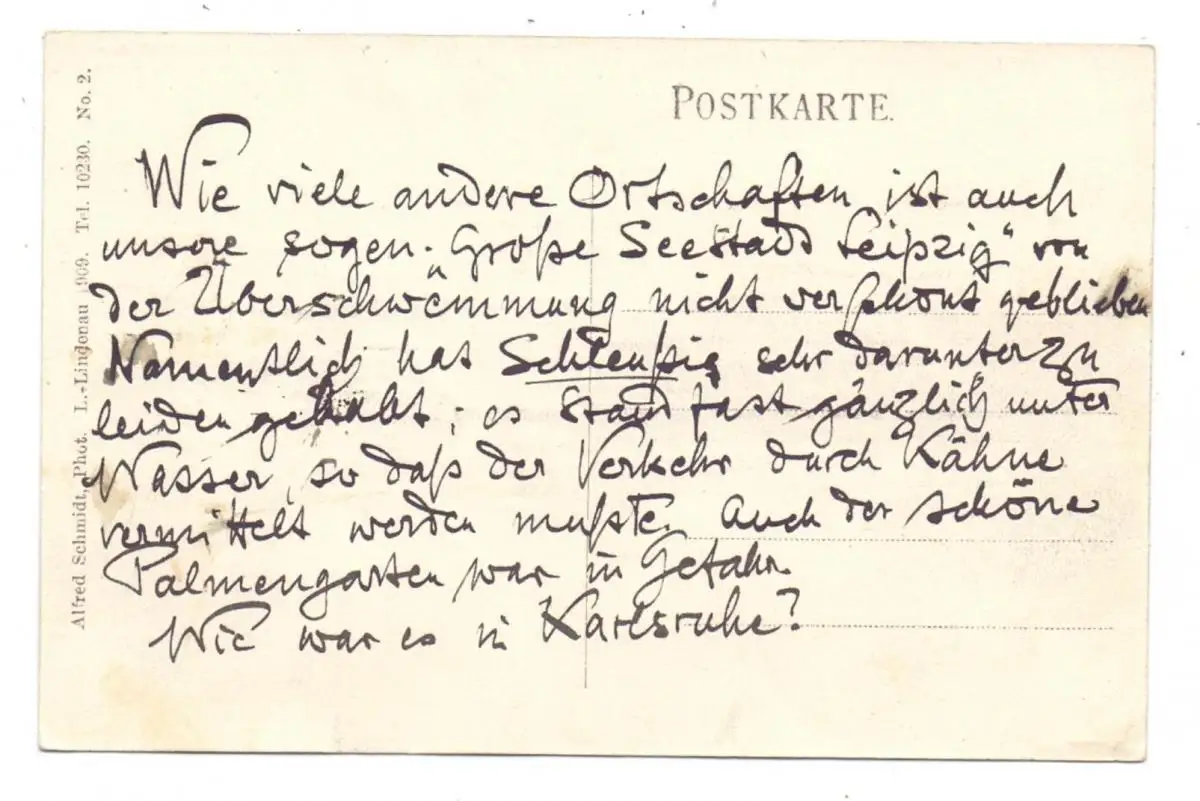 POSTKARTE.
Wie viele andere Ortschaften ist auch
unsere sogen. „Große Seestadt Leipzig“ von
der Überschwemmung nicht verschont geblieben
Namentlich hat Schleußig sehr darunter zu
leiden gehabt; es stand fast gänzlich unter
Wasser, so daß der Verkehr durch Kähne
vermittelt werden mußte. Auch der schöne
Palmengarten war in Gefahr.
Wie war es in Karlsruhe?
Alfred Schmidt, Phot. L.-Lindenau 1909. Tel. 10230. No. 2.